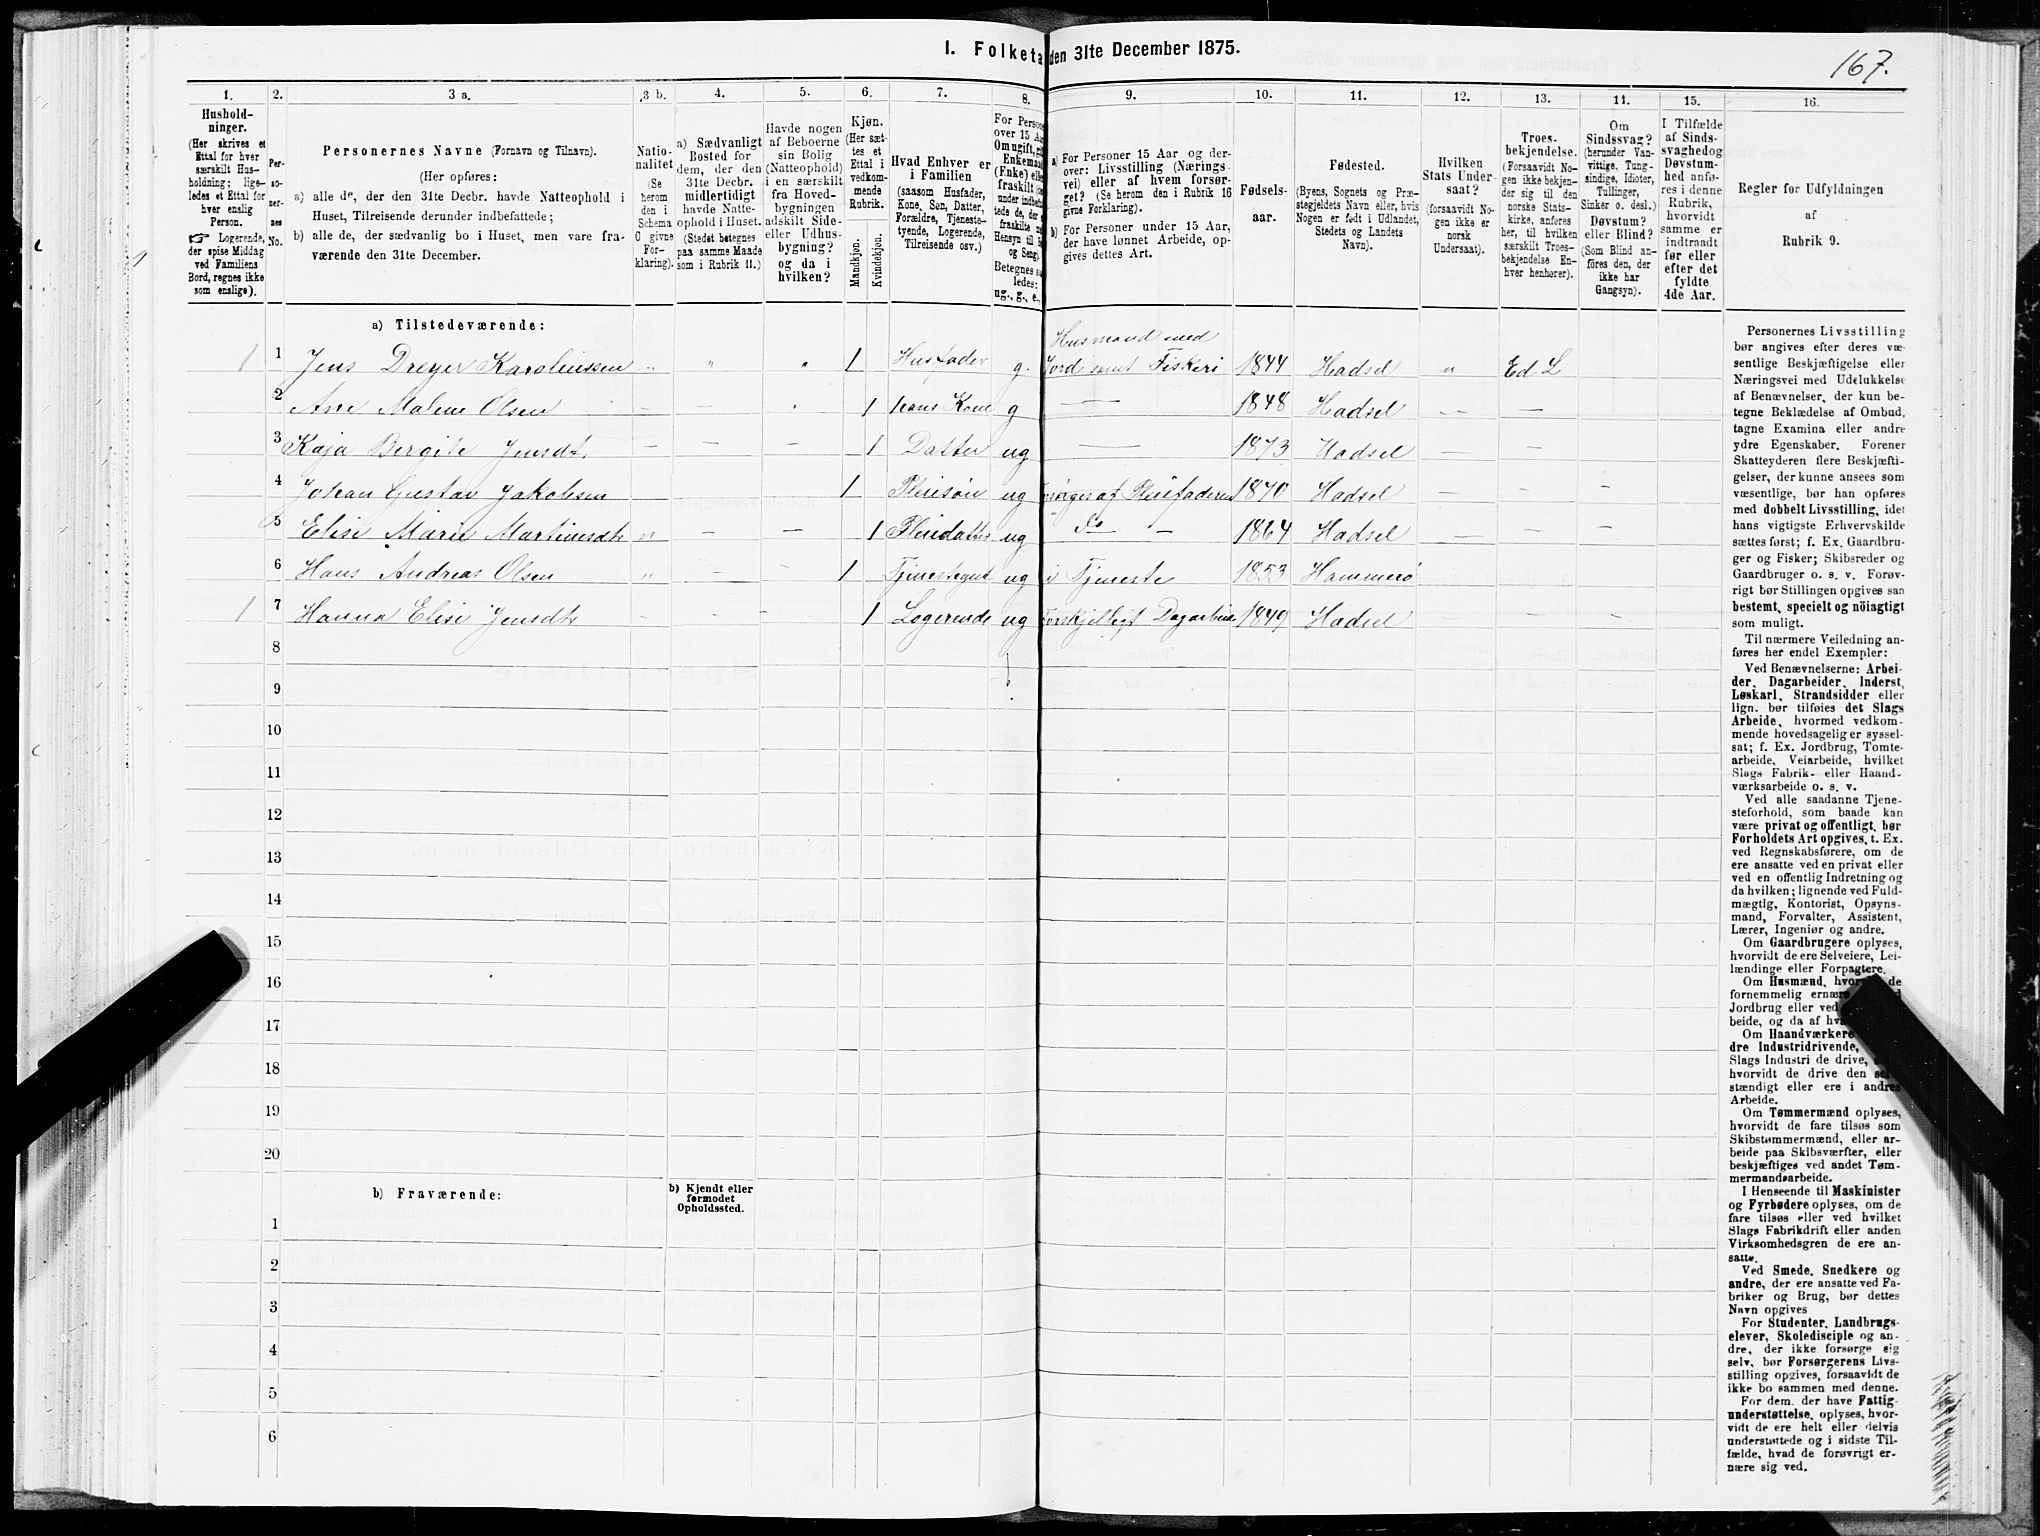 I. Folketa den 31te December 1875.
167.
1.
2.
3 a.
3 b.
4.
5.
6.
7.
8.
9.
10.
11.
12.
13.
14.
15.
16.
Hushold-
ninger.
(Her skrives et
Ettal for hver
særskilt Hus-
holdning; lige-
ledes et Ettal for
hver enslig
Person.
☞ Logerende,
der spise Middag
ved Familiens
Bord, regnes ikke
som enslige).
Per-
so-
ner-
nes
No.
Personernes Navne (Fornavn og Tilnavn).
(Her opføres:
a) alle de, der den 31te Decbr. havde Natteophold i
Huset, Tilreisende derunder indbefattede;
b) alle de, der sædvanlig bo i Huset, men vare fra-
værende den 31te December.
Natio-
nalitet
(Se
herom
den i
Schema
O givne
For-
klaring).
a) Sædvanligt
Bosted for
dem, der den
31te Decbr.
midlertidigt
havde Natte-
ophold i Huset.
(Stedet betegnes
paa samme Maade
som i Rubrik 11.)
Havde nogen
af Beboerne
sin Bolig
(Natteophold)
i en særskilt
fra Hoved-
bygningen
adskilt Side-
eller Udhus-
bygning?
og da i
hvilken?
Kjøn.
(Her sæt-
tes et
Ettal i
vedkom-
mende
Rubrik.
Mandkjøn.
Kvindekjøn.
Hvad Enhver er
i Familien
(saasom Husfader,
Kone, Søn, Datter,
Forældre, Tjeneste-
tyende, Logerende,
Tilreisende osv.)
For Persone
over 15 Aa
Om ugift, gi
Enkemand
(Enke) elle
fraskilt (
under indbefat
tede de, der
fraskilte
Hensyn til
og Seng
Betegnes s
ledes:
ug., g., e.,
a) For Personer 15 Aar og der-
over: Livsstilling (Nærings-
vei) eller af hvem forsør-
get? (Se herom den i Rubrik 16
givne Forklaring).
b) For Personer under 15 Aar,
der have lønnet Arbeide, op-
gives dettes Art.
Fødsels-
aar.
Fødested.
(Byens, Sognets og Præ-
stegjeldets Navn eller, hvis
Nogen er født i Udlandet,
Stedets og Landets
Navn).
Hvilken
Stats Under-
saat?
(forsaavidt No-
gen ikke er
norsk
Undersaat).
Troes-
bekjendelse.
(Forsaavidt No-
gen ikke bekjen-
der sig til den
norske Stats-
kirke, anføres
her, til hvilken
særskilt Troes-
bekjendelse En-
hver henhører).
Om
Sindssvag?
(herunder Van-
vittige, Tung-
sindige, Idioter,
Tullinger,
Sinker o. desl.)
Døvstum?
eller Blind?
(Som Blind an-
føres den, der
ikke har
Gangsyn).
I Tilfælde
af Sinds-
svaghed og
Døvstum-
hed anfø-
res i denne
Rubrik,
hvorvidt
samme er
indtraadt
før eller
efter det
fyldte
4de Aar.
Regler for Udfyldningen
af
Rubrik 9.
a) Tilstedeværende:
Husmand med
1 1 Jens Dreyer Karolinssen 1 Husfader g. Jord samt Fiskeri 1844 Hadsel " Ed L
2 Ane Malene Olsen 1 hans Kone g 1848 Hadsel
3 Kaja Bergite Jensdt. 1 Datter ug 1873 Hadsel
4 Johan Gustav Jakobsen 1 Pleiesøn ug forsørges af Pleiefaderen 1870 Hadsel
5 Elise Marie Martinsdt. 1 Pleiedatter ug Do 1864 Hadsel
6 Hans Andreas Olsen 1 Tjenestegut ug i Tjeneste 1853 Hammerø
1 7 Hanna Elise Jensdt. 1 Logerende ug Forskjelligt Dagarbeide 1849 Hadsel
8
9
10
11
12
13
14
15
16
17
18
19
20
b) Fraværende:
b) Kjendt eller
formodet
Opholdssted.
1
2
3
4
5
6
Personernes Livsstilling
bør angives efter deres væ-
sentlige Beskjæftigelse eller
Næringsvei med Udelukkelse
af Benævnelser, der kun be-
tegne Beklædelse af Ombud,
tagne Examina eller andre
ydre Egenskaber. Forener
Skatteyderen flere Beskjæfti-
gelser, der kunne ansees som
væsentlige, bør han opføres
med dobbelt Livsstilling, idet
hans vigtigste Erhvervskilde
sættes først; f. Ex. Gaardbru-
ger og Fisker; Skibsreder og
Gaardbruger o. s. v. Forøv-
rigt bør Stillingen opgives saa
bestemt, specielt og nöiagtigt
som muligt.
Til nærmere Veiledning an-
føres her endel Exempler:
Ved Benævnelserne: Arbei-
der, Dagarbeider, Inderst,
Løskarl, Strandsidder eller
lign. bør tilføies det Slags
Arbeide, hvormed vedkom-
mende hovedsagelig er syssel-
sat; f. Ex. Jordbrug, Tomte-
arbeide, Veiarbeide, hvilket
Slags Fabrik- eller Haand-
værksarbeide o. s. v.
Ved alle saadanne Tjene-
steforhold, som baade kan
være privat og offentligt, bør
Forholdets Art opgives, t. Ex.
ved Regnskabsførere, om de
ere ansatte ved en privat eller
ved en offentlig Indretning og
da hvilken; lignende ved Fuld-
mægtig, Kontorist, Opsyns-
mand, Forvalter, Assistent,
Lærer, Ingeniør og andre.
Om Gaardbrugere oplyses,
hvorvidt de ere Selveiere, Lei-
lændinge eller Forpagtere.
Om Husmænd, hvor de
fornemmelig ernære
Jordbrug eller ved
beide, og da af
Om Haandværkere
dre Industridrivende,
Slags Industri de drive,
hvorvidt de drive den
stændigt eller ere i andres
Arbeide.
Om Tømmermænd oplyses,
hvorvidt de fare tilsøs som
Skibstømmermænd, eller ar-
beide paa Skibsværfter, eller
beskjæftiges ved andet Tøm-
mermandsarbeide.
I Henseende til Maskinister
og Fyrbødere oplyses, om de
fare tilsøs eller ved hvilket
Slags Fabrikdrift eller anden
Virksomhedsgren de ere an-
satte.
Ved Smede, Snedkere og
andre, der ere ansatte ved Fa-
briker og Brug, bør dettes
Navn opgives
For Studenter, Landbrugs-
elever, Skoledisciple og an-
dre, der ikke forsørge sig
selv, bør Forsørgerens Livs-
stilling opgives, forsaavidt de
ikke bo sammen med denne.
For dem, der have Fattig-
understøttelse, oplyses, hvor-
vidt de ere helt eller delvis
understøttede og i sidste Til-
fælde, hvad de forøvrigt er-
nære sig ved.